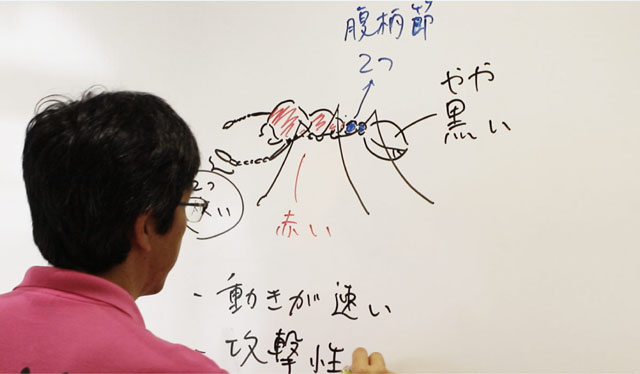 腹柄節
2つ
やや
黒い
2つ
赤い
・動きが速い
・攻撃性